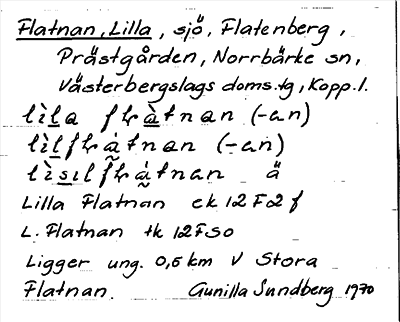 Flatnan, Lilla, sjö, Flatenberg,
Prästgården, Norrbärke sn,
Västerbergslags doms.tg, Kopp.l.
lìla flàtnan (-an)
lìlflàtnan (-an)
lìsilflàtnan ä
Lilla Flatnan ek 12F2f
L. Flatnan tk 12FSO
Ligger ung. 0,5 km V Stora
Flatnan. Gunilla Sundberg 1970